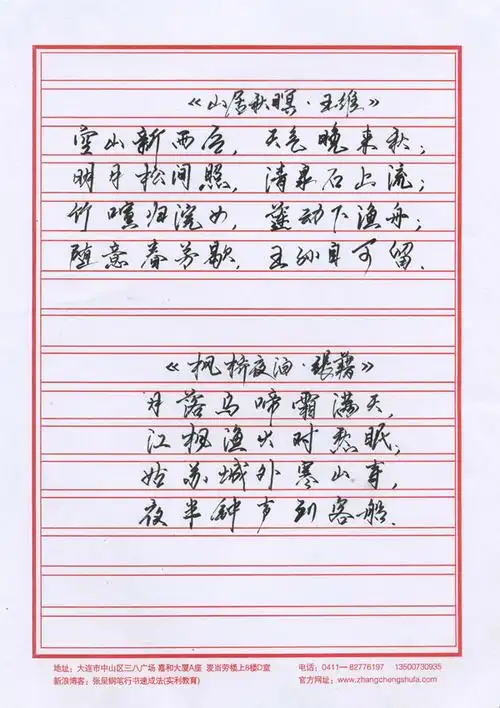 《山居秋暝·王维》
空山新雨后，天气晚来秋；
明月松间照，清泉石上流；
竹喧归浣女，莲动下渔舟；
随意春芳歇，王孙自可留.
《枫桥夜泊·張籍》
月落乌啼霜满天，
江枫渔火对愁眠；
姑苏城外寒山寺，
夜半钟声到客船.
地址：大连市中山区三八广场 嘉和大厦A座 麦当劳楼上6楼D室 电话：0411—82776197 13500730935
新浪博客：张呈钢笔行书速成法(实利教育) 官方网址：www.zhangchengshufa.com